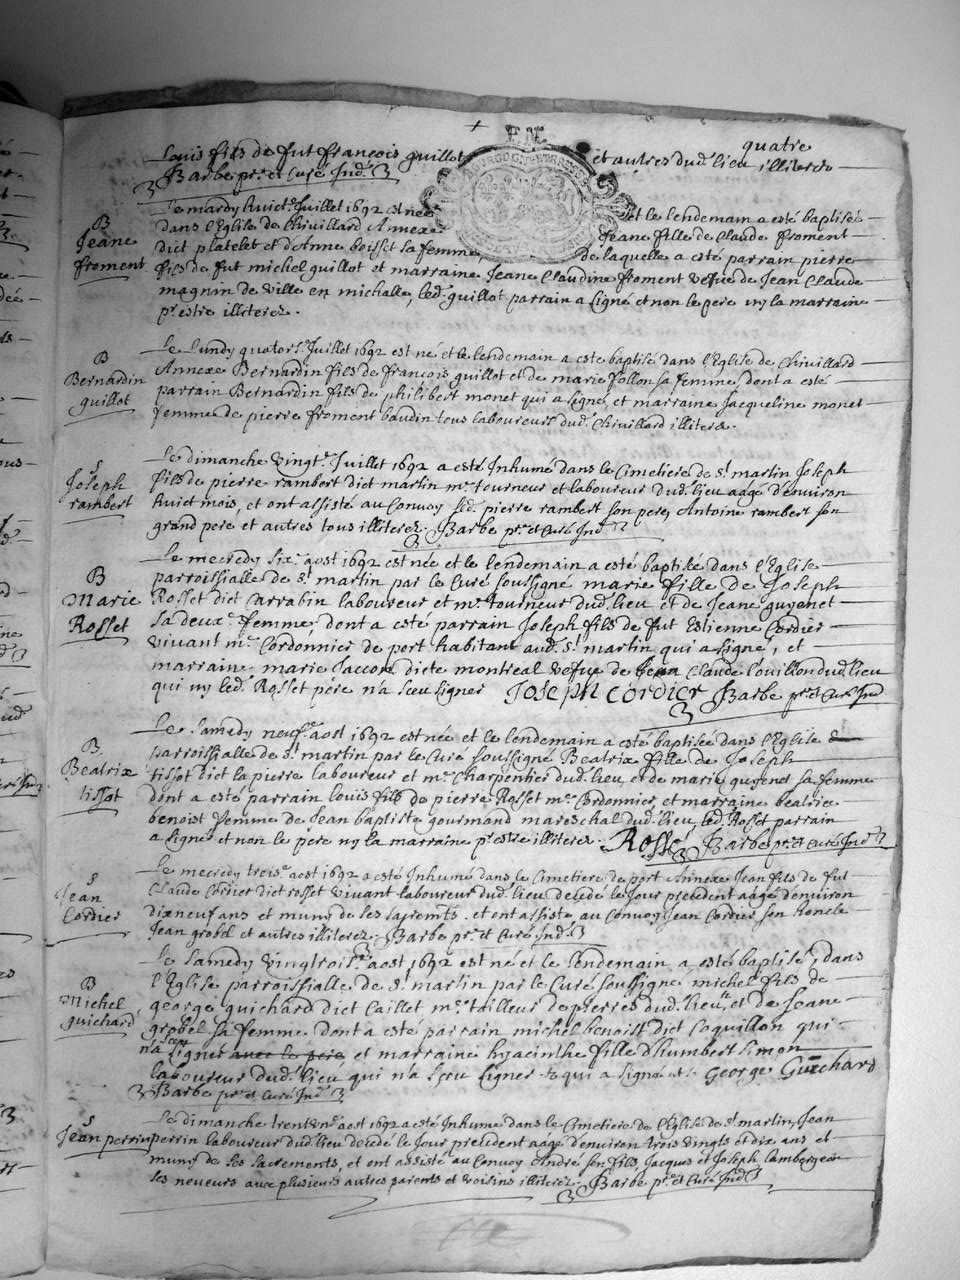 quatre
Louis fils de fut françois guillot et autres dud. lieu illiteres
Barbe pr. et Curé Ind.
B
Jeane
froment
Le mardy huict. Juillet 1692 est née et le lendemain a esté baptisée
dans l'Eglise de Chivillard Annexe Jeane fille de Claude froment
dict platelet et d'Anne boisset sa femme, de laquelle a esté parrain pierre
fils de fut michel guillot et marraine Jeane Claudine froment vefve de Jean Claude
magnin de ville en michalle, led. guillot parrain a signé et non le pere ny la marraine
pr estre illiteres.
B
Bernardin
guillot
Le Lundy quators. Juillet 1692 est né et le lendemain a este baptisé dans l'Eglise de Chivillard
Annexe Bernardin fils de françois guillot et de marie follon sa femme, dont a esté
parrain Bernardin fils de philibert monet qui a signé, et marraine Jacqueline monet
femme de pierre froment baudin tous laboureurs dud. Chivillard illiteres.
S
Joseph
rambert
Le dimanche vingt. Juillet 1692 a esté Inhumé dans le Cimetiere de St. martin, Joseph
fils de pierre rambert dict martin mr. tourneur et laboureur dud. lieu aagé d'environ
huict mois, et ont assisté au Convoy led. pierre rambert son pere, Antoine rambert son
grand pere et autres tous illiteres. Barbe pr. et Curé Ind.
B
Marie
Rosset
Le mecredy six. aost 1692 est née et le lendemain a esté baptisée dans l'Eglise
parroissialle de St. martin par le Curé soussigné marie fille de Joseph
Rosset dict Carrabin laboureur et mr. tourneur dud. lieu et de Jeane guyenet
sa deux. femme, dont a esté parrain Joseph fils de fut Estienne Cordier
vivant mr. Cordonnier de port habitant aud. St. martin qui a signé, et
marraine marie Jacon dicte montreal vefve de Claude Louillon dud. lieu
qui ny led. Rosset pere n'a sceu signer Joseph Cordier Barbe pr. et Curé Ind
B
Beatrix
tissot
Le Samedy neuf. aost 1692 est née et le lendemain a esté baptisée dans l'Eglise
parroissialle de St. martin par le Curé soussigné Beatrix fille de Joseph
tissot dict la pierre laboureur et mr. Charpentier dud. lieu et de marie guyenet sa femme
dont a esté parrain louis fils de pierre Rosset mr. Cordonnier, et marraine beatrix
benoist femme de Jean baptiste gourmand mareschal dud. lieu, led. Rosset parrain
a signé et non le pere ny la marraine pr. estre illiteres. Rosse Barbe pr. et Curé Ind
S
Jean
Cordier
Le mecredy trois. aost 1692 a esté Inhumé dans le Cimetiere de port Annexe Jean fils de fut
Claude Cordier dict rosset vivant laboureur dud. lieu decedé le Jour precedent aagé d'environ
dixneuf ans et muny de ses sacremts. et ont assisté au Convoy Jean Cordier son honcle
Jean grobel et autres illiteres. Barbe pr. et Curé Ind
B
Michel
guichard
Le Samedy vingtrois. aost 1692 est né et le lendemain a esté baptisé, dans
l'Eglise parroissialle de St. martin par le Curé soussigné michel fils de
george guichard dict Caillet mr. tailleur de pierres dud. lieu, et de Jeane
grobel sa femme, dont a esté parrain michel benoist dict Coquillon qui
n'a sceu signer avec le pere et marraine hyacinthe fille d'humbert simon
laboureur dud. lieu qui n'a sceu signer qui a signé George Guichard
Barbe pr. et Curé Ind
S
Jean perrin
Le dimanche trentun. aost 1692 a esté Inhumé dans le Cimetiere de l'Eglise de St. martin, Jean
perrin laboureur dud. lieu decedé le Jour precedent aagé d'environ trois vingts et dix ans et
muny de ses sacrements, et ont assisté au Convoy André son fils, Jacques et Joseph
ses neveurs aux plusieurs autres parents et voisins illiteres. Barbe pr. et Curé Ind